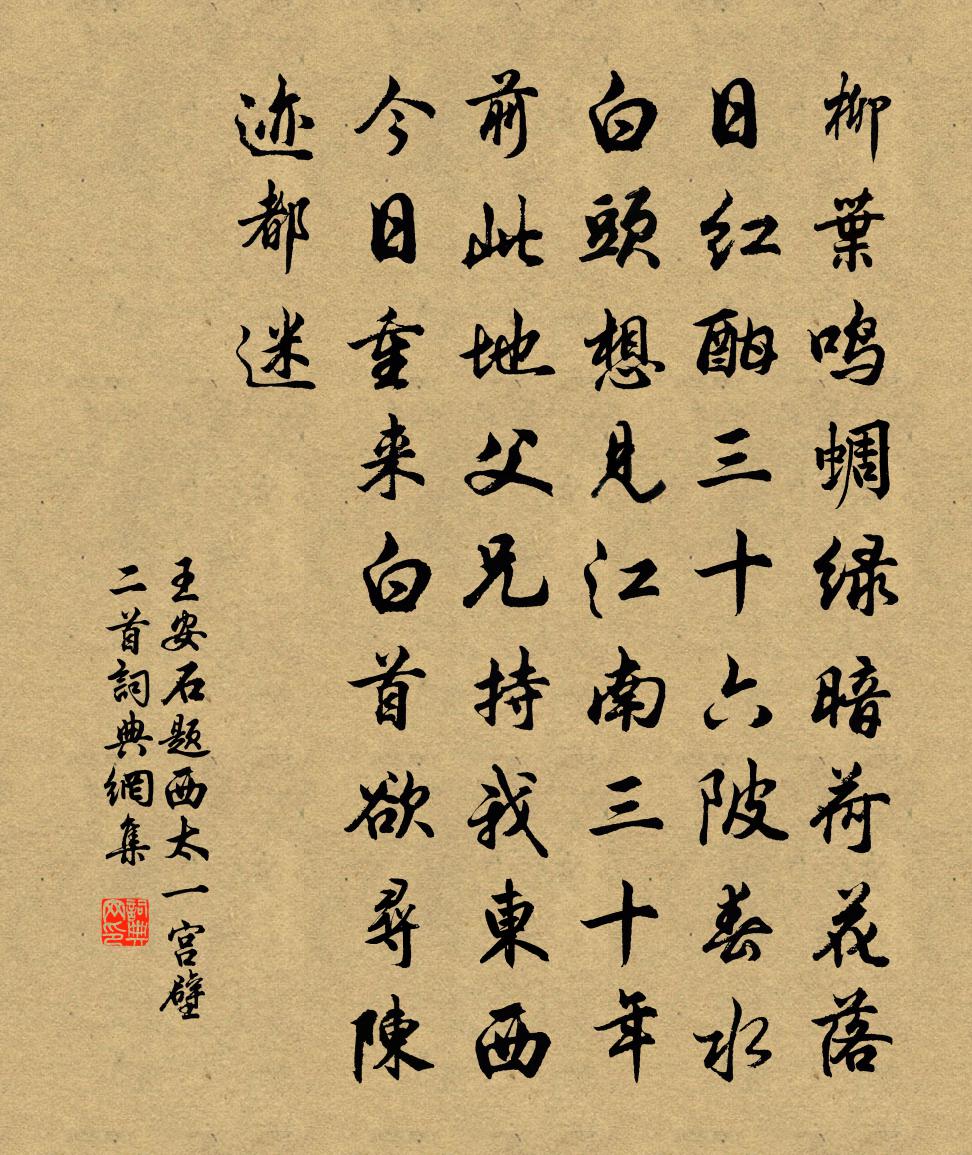 柳葉鸣蜩绿暗荷花落
日红酣三十六陂春水
白頭想見江南三十年
前此地父兄持我東西
今日重来白首欲尋陳
迹都迷
王安石题西太一宫壁
二首詞典網集
詞典网印